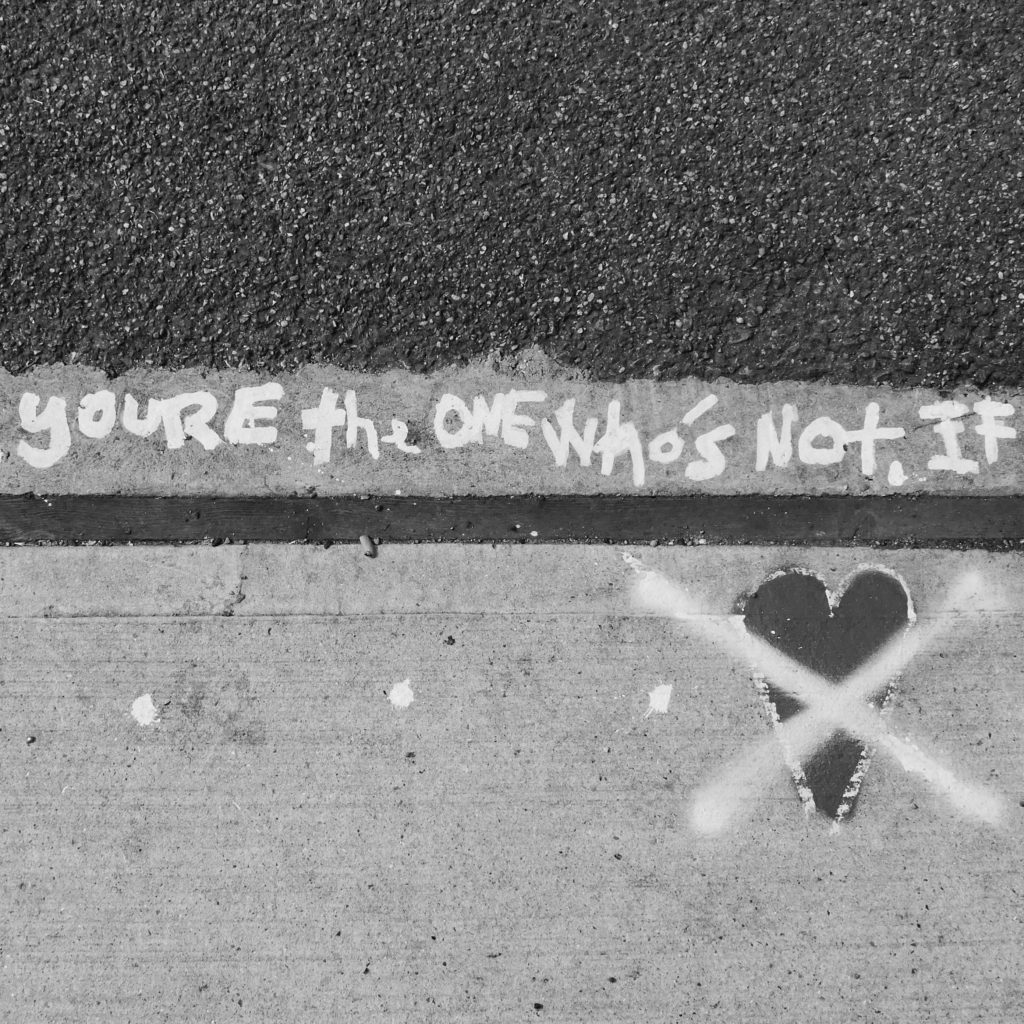 YOURE the ONE Who's Not. IF